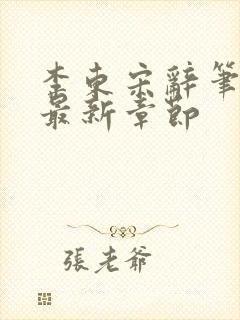 李东宋辭筆
最新章節
張老爺